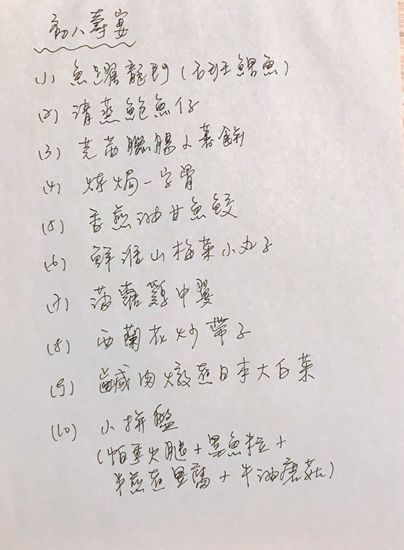 初八壽宴
(1) 魚躍龍門 (石班鯉魚)
(2) 清蒸鮑魚仔
(3) 芫茜臘腸小薯餅
(4) 炸焗一字骨
(5) 香煎油甘魚鮫
(6) 鮮淮山梅菜小丸子
(7) 蒲露雞中翼
(8) 西蘭花炒帶子
(9) 鹹肉燉蒸日本大白菜
(10) 小拼盤
(帕馬火腿+墨魚粒+
羊蒸豆腐+牛油磨菇)